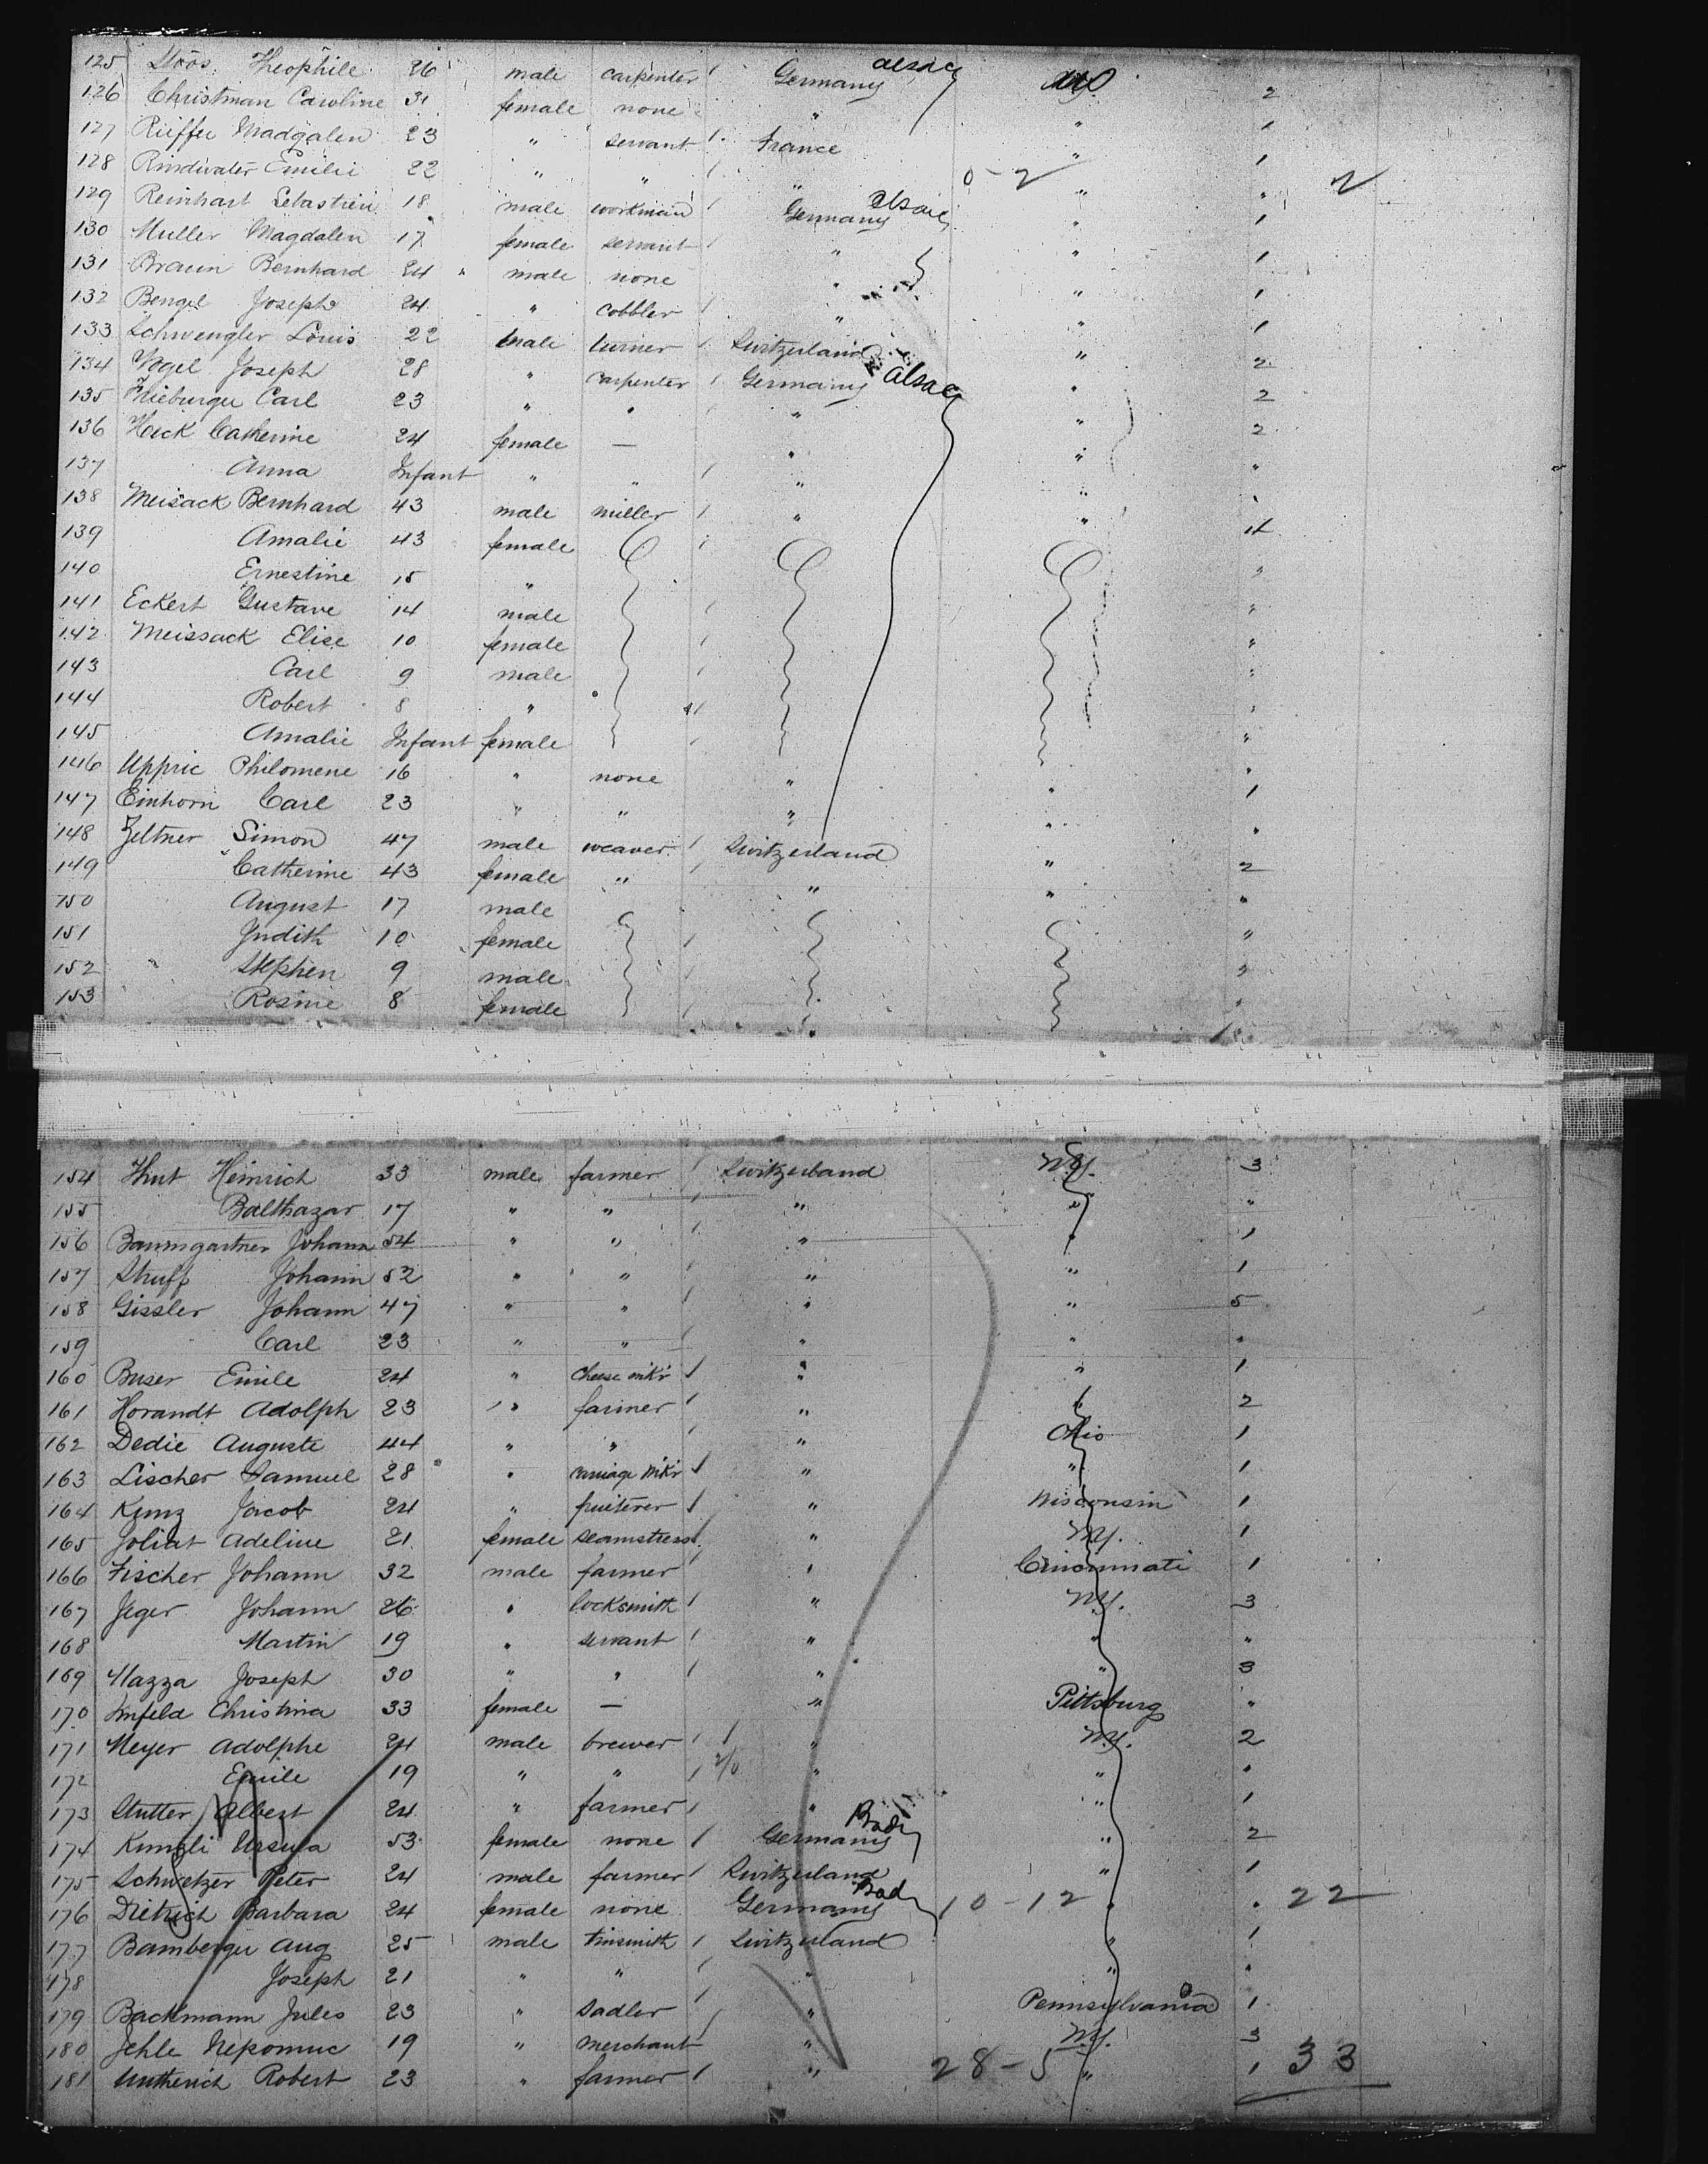 125 Stoos Theophile 26 male carpenter Germany Alsace N.Y.
126 Christman Caroline 31 female none " " 2
127 Rieffer Madgalen 23 " servant France " 1
128 Rindwater Emilie 22 " " " 0-2 " 1
129 Reinhart Sebastien 18 male workman Germany Alsace " " 2
130 Muller Magdalen 17 female servant " " 1
131 Braun Bernhard 24 male none " " 1
132 Bengel Joseph 24 " cobbler " " 1
133 Schwengler Louis 22 male turner Switzerland " 1
134 Vogel Joseph 28 " carpenter Germany Alsace " 2
135 Frieburger Carl 23 " " " " 2
136 Heck Catherine 24 female — " " 2
137 Anna Infant " " " " "
138 Meisack Bernhard 43 male miller " "
139 Amalie 43 female 4
140 Ernestine 15 " "
141 Eckert Gustave 14 male "
142 Meissack Elise 10 female "
143 Carl 9 male "
144 Robert 8 " "
145 Amalie Infant female "
146 Uppric Philomene 16 " none " "
147 Einhorn Carl 23 " " " " 1
148 Zeltner Simon 47 male weaver Switzerland " "
149 Catherine 43 female " " " 2
150 August 17 male " "
151 Judith 10 female "
152 " Stephen 9 male "
153 Rosine 8 female "
154 Hut Heinrich 33 male farmer Switzerland N.Y. 3
155 Balthazar 17 " " " " "
156 Baumgartner Johann 54 " " " " 1
157 Struff Johann 52 " " " " 1
158 Gissler Johann 47 " " " " 5
159 Carl 23 " " " " "
160 Buser Emile 24 " cheese mk'r " " 1
161 Horandt Adolph 23 " farmer " " 2
162 Dedie Auguste 44 " " " Ohio 1
163 Lischer Samuel 28 " carriage mk'r " " 1
164 Kunz Jacob 24 " fruiterer " Wisconsin 1
165 Joliat Adeline 21 female seamstress " N.Y. 1
166 Fischer Johann 32 male farmer " Cincinnati 1
167 Jeger Johann 26 " locksmith " N.Y. 3
168 Martin 19 " servant " " "
169 Mazza Joseph 30 " " " " 3
170 Imfeld Christina 33 female — " Pittsburg "
171 Meyer Adolphe 24 male brewer " N.Y. 2
172 Emile 19 " " " " "
173 Stutter Albert 24 " farmer " " 1
174 Kunzli Ursula 53 female none Germany Bad " 2
175 Schwetzer Peter 24 male farmer Switzerland " 1
176 Dietrich Barbara 24 female none Germany Bad 10-12 " " 22
177 Bamberger Aug 25 male tinsmith Switzerland " 1
178 Joseph 21 " " " " "
179 Bachmann Jules 23 " sadler " Pennsylvania 1
180 Jehle Nepomuc 19 " merchant " N.Y. 3
181 Robert 23 " farmer " 28-5 " 1 33